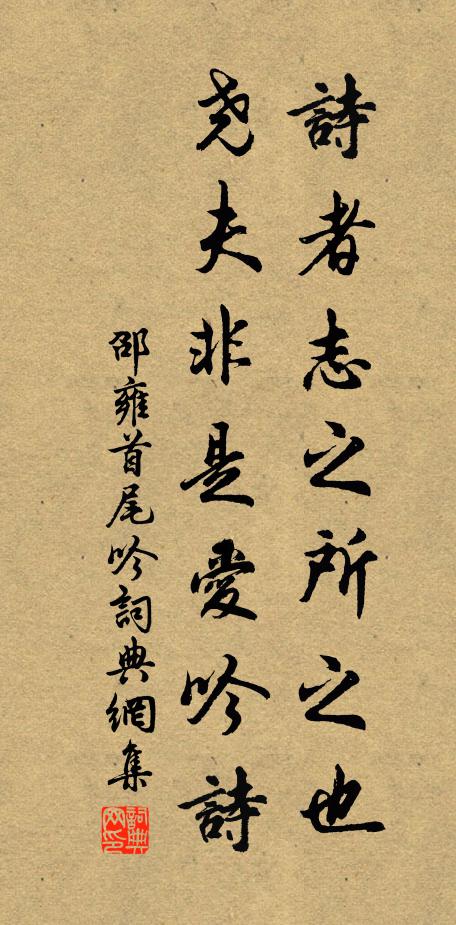 詩者志之所之也
尧夫非是愛吟詩
邵雍首尾吟詞典網集
詞典网印